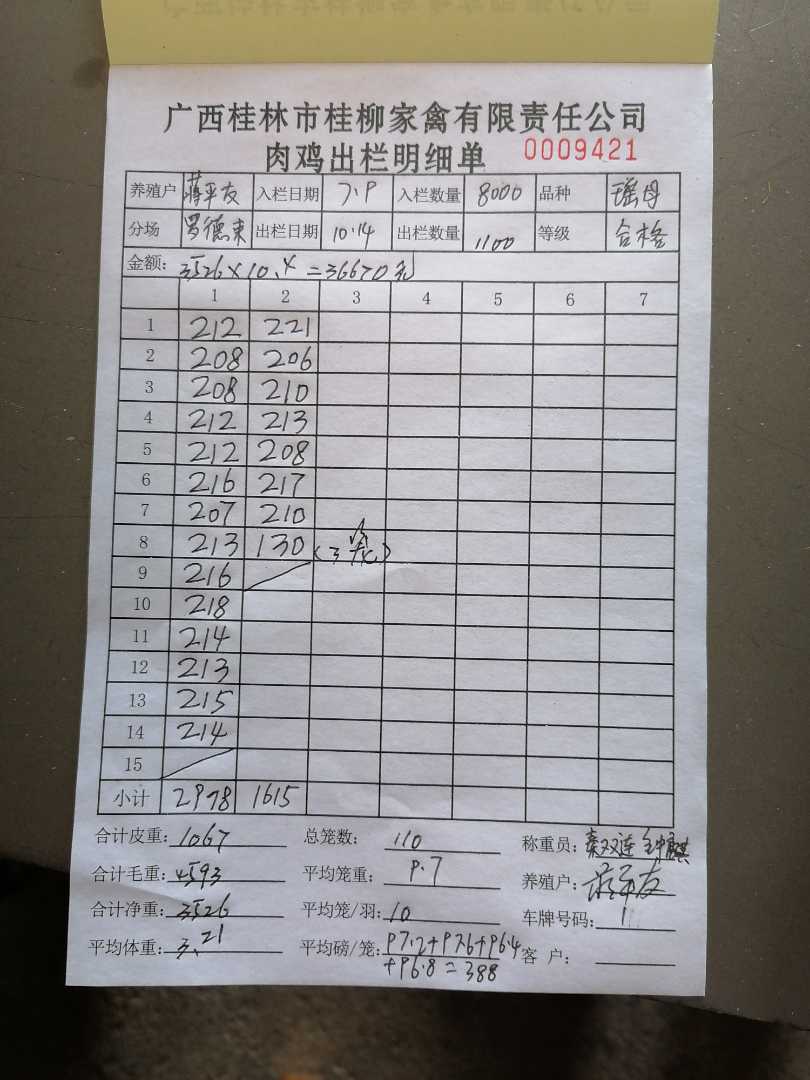 广西桂林市桂柳家禽有限责任公司
肉鸡出栏明细单 0009421
养殖户 蒋平友 入栏日期 7.9 入栏数量 8000 品种 瑶母
分场 罗德束 出栏日期 10.14 出栏数量 1100 等级 合格
金额: 3526×10.4=36670元
1 2 3 4 5 6 7
1 212 221
2 208 206
3 208 210
4 212 213
5 212 208
6 216 217
7 207 210
8 213 130 (3笼)
9 216
10 218
11 214
12 213
13 215
14 214
15
小计 2978 1615
合计皮重: 1067 总笼数: 110 称重员:
合计毛重: 4593 平均笼重: 9.7 养殖户: 蒋平友
合计净重: 3526 平均笼/羽: 10 车牌号码: 1
平均体重: 3.21 平均磅/笼: 97.2+97.6+96.4 客 户:
+96.8=388